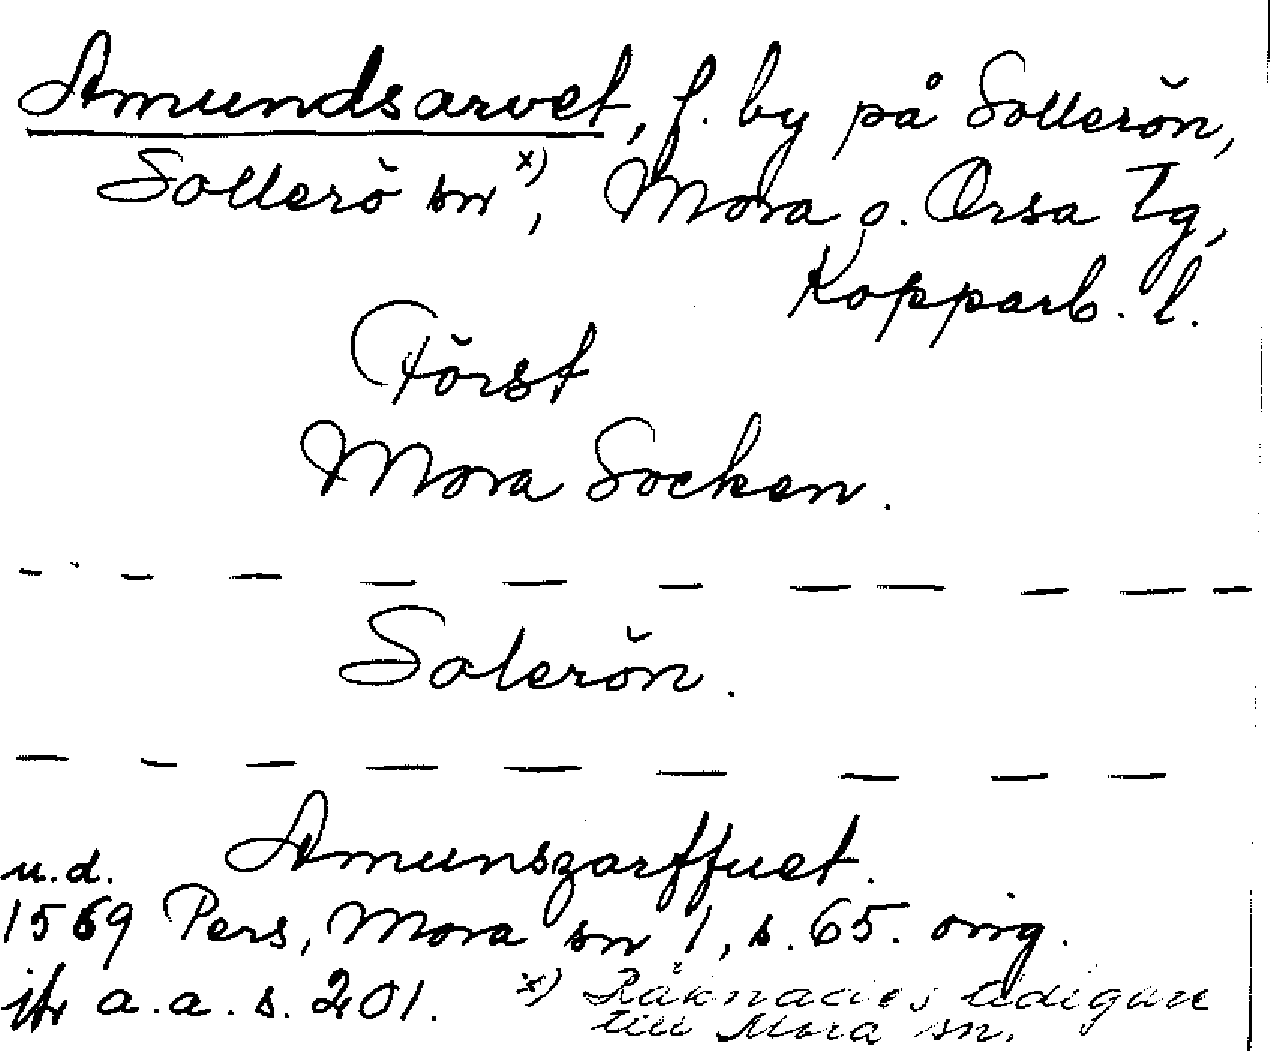 Amundsarvet, f. by på Sollerön,
Sollerö sn x), Mora o. Orsa tg,
Kopparb. l.
Först
Mora Socken.
Solerön.
Amunszarffuet.
u.d.
1569 Pers, Mora sn 1, s. 65. orig.
jfr a.a. s. 201. x) Räknades tidigare
till Mora sn.